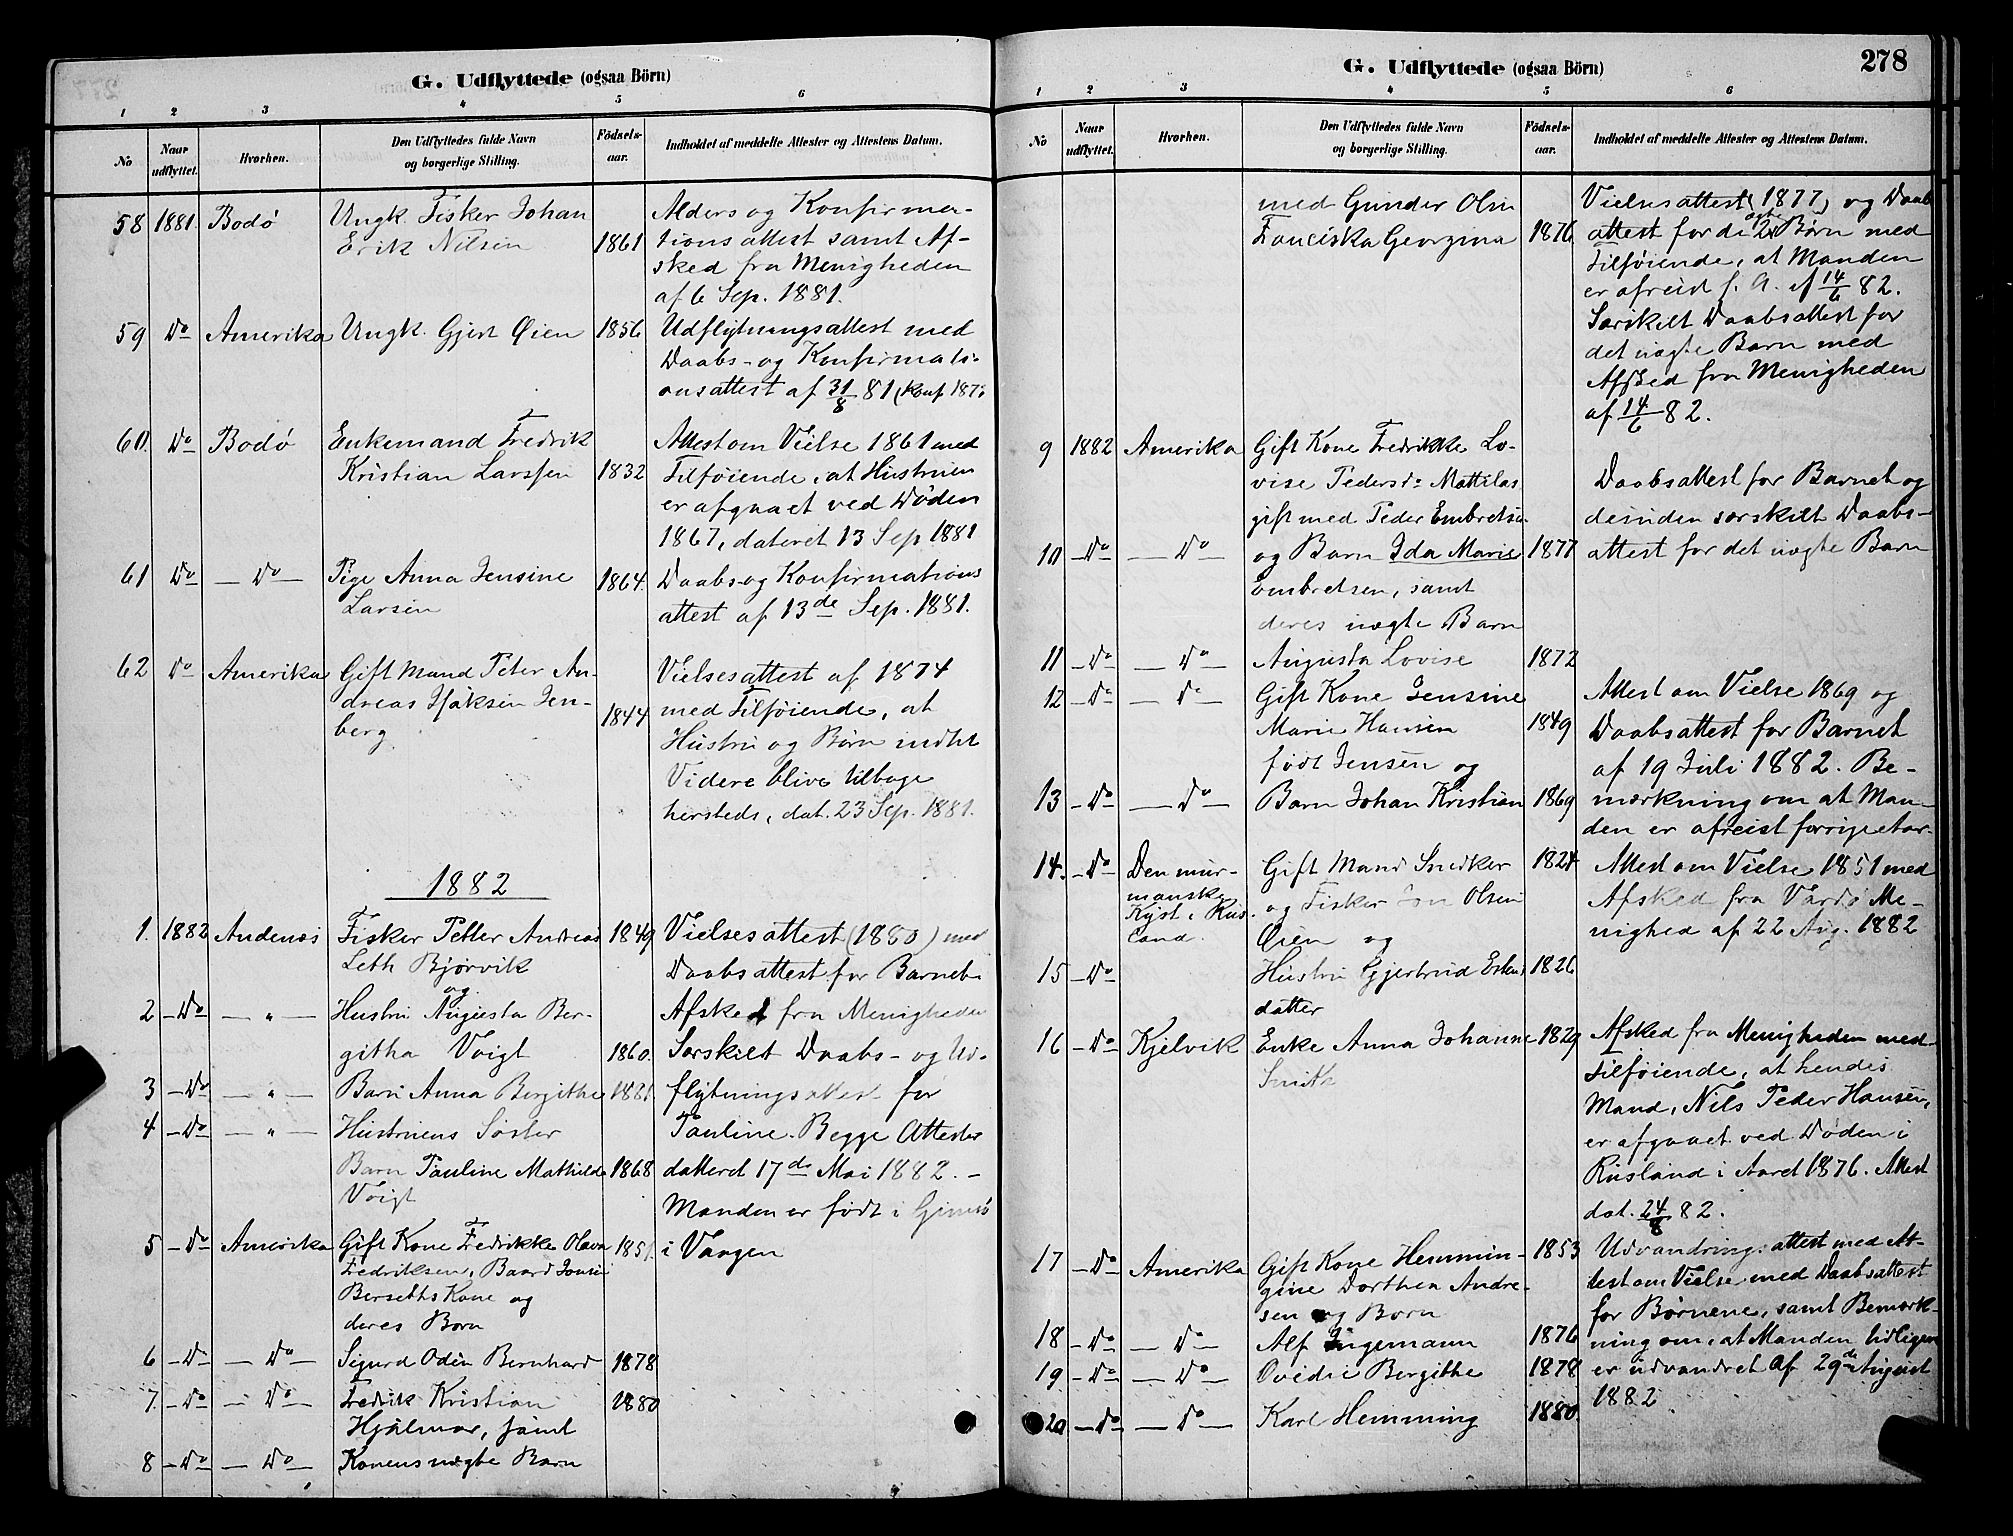 G. Udflyttede (ogsaa Börn)
1 2 3 4 5 6
No
Naar udflyttet.
Hvorhen.
Den Udflyttedes fulde Navn og borgerlige Stilling.
Födsels-aar.
Indholdet af meddelte Attester og Attestens Datum.
58 1881. Bodø Ungk. Fisker Johan Alders og Konfirma-
Erik Nilsen 1861 tionsattest samt Af-
sked fra Menigheden
af 6 Sep. 1881.
59 Do Amerika Ungk. Gjert Øien 1856 Udflytningsattest med
Daabs- og Konfirmati-
onsattest af 31/8 81 (Konf 187
60. Do Bodø Enkemand Fredrik Attest om Vielse 1861 med
Kristian Larssen 1832 Tilføiende, at Hustruen
er afgaaet ved Døden
1867, dateret 13 Sep 1881
61 Do — Do — Pige Anna Jensine 1864. Daabs- og Konfirmations
Larsen attest af 13de Sep. 1881.
62 Do Amerika Gift Mand Peter An- Vielsesattest af 1874
dreas Isaksen Jen- 1844 med Tilføiende, at
berg. Hustru og Børn indtil
Videre blive tilbage
hersteds, dat. 23 Sep. 1881.
1882
1. 1882 Andenæs Fisker Petter Andreas 1849 Vielsesattest (1880) med
Leth Bjørvik Daabsattest for Barnet.
og
2 - Do — " — Hustru Augusta Ber- Afsked fra Menigheden
githa Voigt 1860. Særskilt Daabs- og Ud-
3 - Do — " — Barn Anna Bergithe 1881. flytningsattest for
4 - Do — " — Hustruens Søster Pauline. Begge Attester
Barn Pauline Mathilde 1868 datteret 17de Mai 1882. -
Voigt Manden er født i Gimsø
5 - Do Amerika Gift Kone Fredrikke Olava 1851. i Vaagen
Fredriksen, Baard Jonsen
Berseths Kone og
deres Børn
6 - Do — Do — Sigurd Odin Bernhard 1878
7. - Do — Do — Fredrik Kristian 1880
Hjalmar, samt
8 - Do — Do — Konens uægte Barn
G. Udflyttede (ogsaa Börn) 278
1 2 3 4 5 6
No
Naar udflyttet.
Hvorhen.
Den Udflyttedes fulde Navn og borgerlige Stilling.
Födsels-aar.
Indholdet af meddelte Attester og Attestens Datum.
med Gunder Olsen Vielsesattest (1877) og Daabs
Franciska Georgina 1876 attest for de ægte 2 Børn med
Tilføiende, at Manden
er afreist f. A. af 14/6 82.
Særskilt Daabsattest for
det uægte Barn med
Afsked fra Menigheden
af 14/6 82.
9 1882 Amerika Gift Kone Fredrikke Lo-
vise Pedersdr Mattilas Daabsattest for Barnet og
gift med Peder Embretsen desuden særskilt Daabs-
10 - Do — Do — og Barn Ida Marie 1877 attest for det uægte Barn
Embretsen, samt
deres uægte Barn
11 - Do — Do — Augusta Lovise 1872
12 - Do — Do Gift Kone Jensine Attest om Vielse 1869 og
Marie Hansen 1849 Daabsattest for Barnet
født Jensen og af 19 Juli 1882. Be-
13 - Do — Do — Barn Johan Kristian 1869 mærkning om at Man-
den er afreist forrige Aar.
14. - Do Den mur- Gift Mand Snedker 1824 Attest om Vielse 1851 med
manske og Fisker Jon Olsen Afsked fra Vardø Me-
Kyst i Rus- Øien og nighed af 22 Aug. 1882
land.
15 - Do Hustru Gjertrud Estens 1826
datter
16 - Do Kjelvik Enke Anna Johanne 1829 Afsked fra Menigheden med
Smith Tilføiende, at hendes
Mand, Nils Peder Hansen,
er afgaaet ved Døden i
Rusland i Aaret 1876. Attest
dat. 24/8 82.
17 - Do Amerika Gift Kone Hemmin- 1853 Udvandringsattest med At-
gine Dorthea Andre- test om Vielse med Daabsattest
sen og Børn for Børnene, samt Bemærk-
18 - Do — Do — Alf Ingemann 1876 ning om, at Manden tidligere
19 - Do — Do — Ovidie Bergithe 1878 er udvandret af 29de August
20 - Do — Do — Karl Hemming 1880. 1882